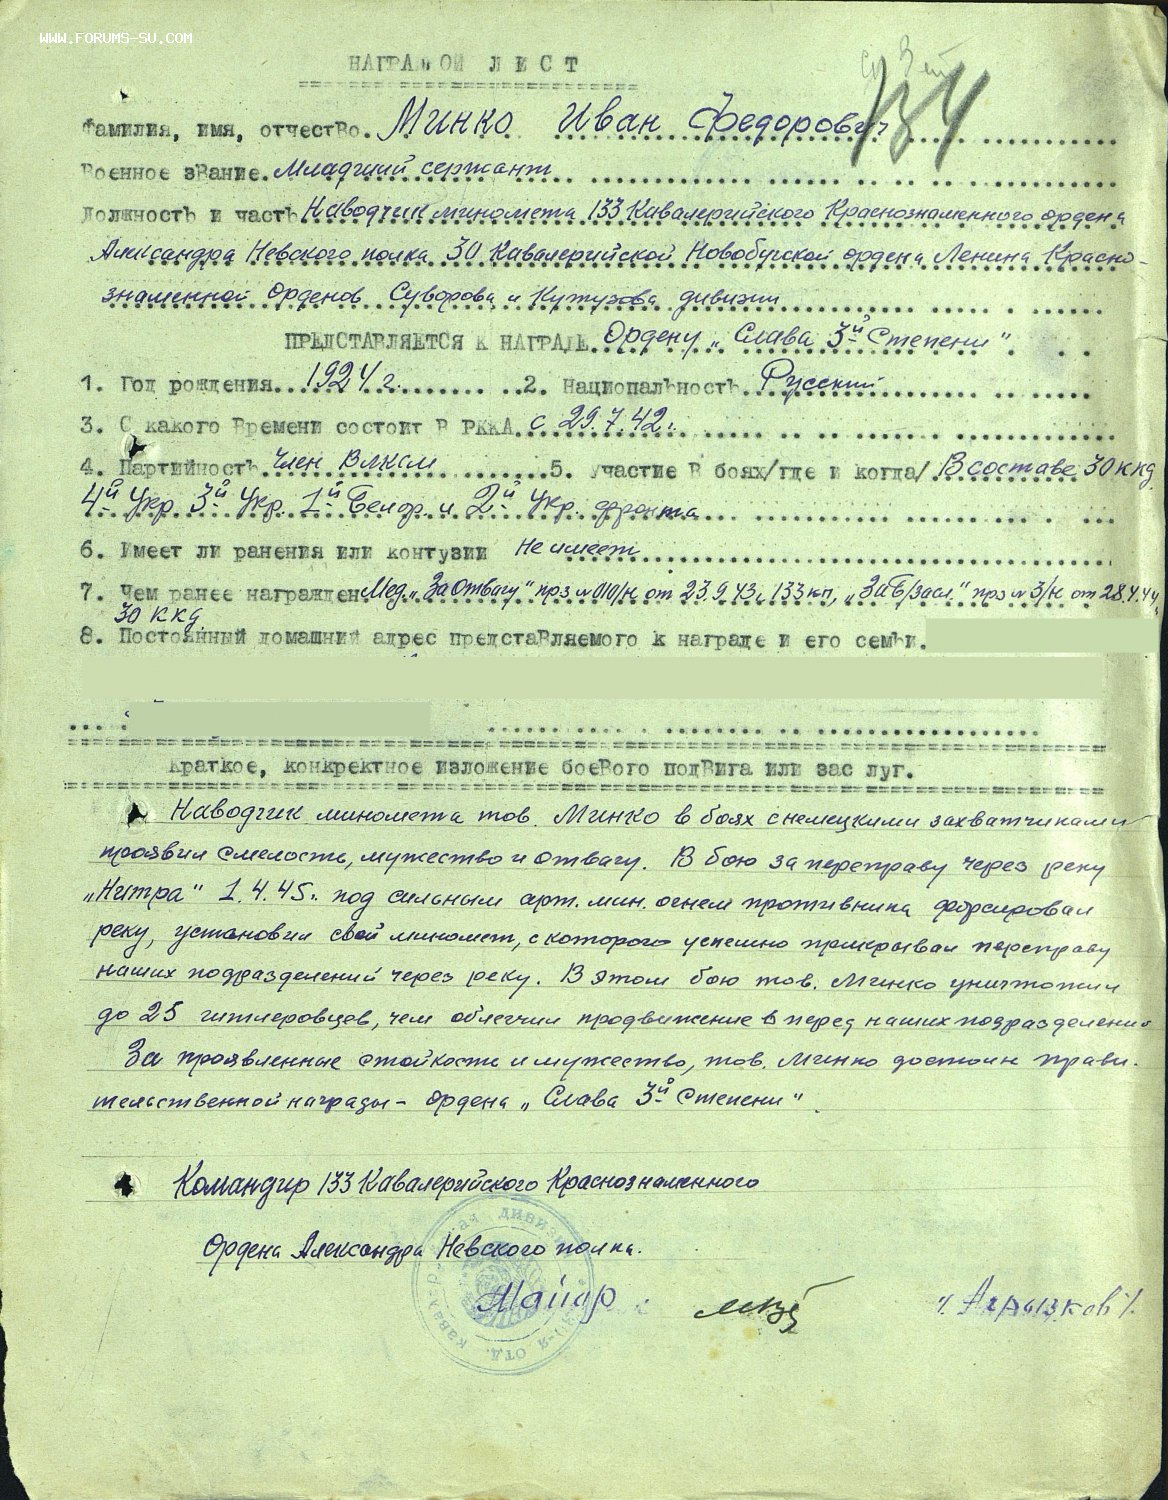 WWW.FORUMS-SU.COM
НАГРАДНОЙ ЛИСТ
134
Фамилия, имя, отчество. Минко Иван Федорович
Военное звание. Младший сержант
Должность и часть Наводчик миномета 133 Кавалерийского Краснознаменного ордена
Александра Невского полка 30 Кавалерийской Новобугской ордена Ленина Красно-
знаменной Орденов Суворова и Кутузова дивизии
ПРЕДСТАВЛЯЕТСЯ К НАГРАДЕ. Ордену „Слава 3й Степени"
1. Год рождения...1924 г. 2. Национальность. Русский
3. С какого времени состоит в РККА. с 29.7.42 г.
4. Партийность. Член ВЛКСМ 5. Участие в боях/где и когда/ В составе 30 ккд
4й Укр. 3й Укр. 1й Белор. и 2й Укр. фронта
6. Имеет ли ранения или контузии Не имеет
7. Чем ранее награжден Мед. „За Отвагу" прз №010/н от 23.9.43г. 133 кп, „За Б/засл." прз №3/н от 28.4.44г.
30 ккд
8. Постоянный домашний адрес представляемого к награде и его семьи.
Краткое, конкректное изложение боевого подвига или зас луг.
Наводчик миномета тов. Минко в боях с немецкими захватчиками
проявил смелость, мужество и отвагу. В бою за переправу через реку
„Нитра" 1.4.45г. под сильным арт. мин. огнем противника форсировал
реку, установил свой миномет, с которого успешно прикрывал переправу
наших подразделений через реку. В этом бою тов. Минко уничтожил
до 25 гитлеровцев, чем облегчил продвижение в перед наших подразделений
За проявленные стойкость и мужество, тов. Минко достоин прави-
тельственной награды - ордена „Слава 3й Степени"
Командир 133 Кавалерийского Краснознаменного
Ордена Александра Невского полка.
Майор /Агрызков/.